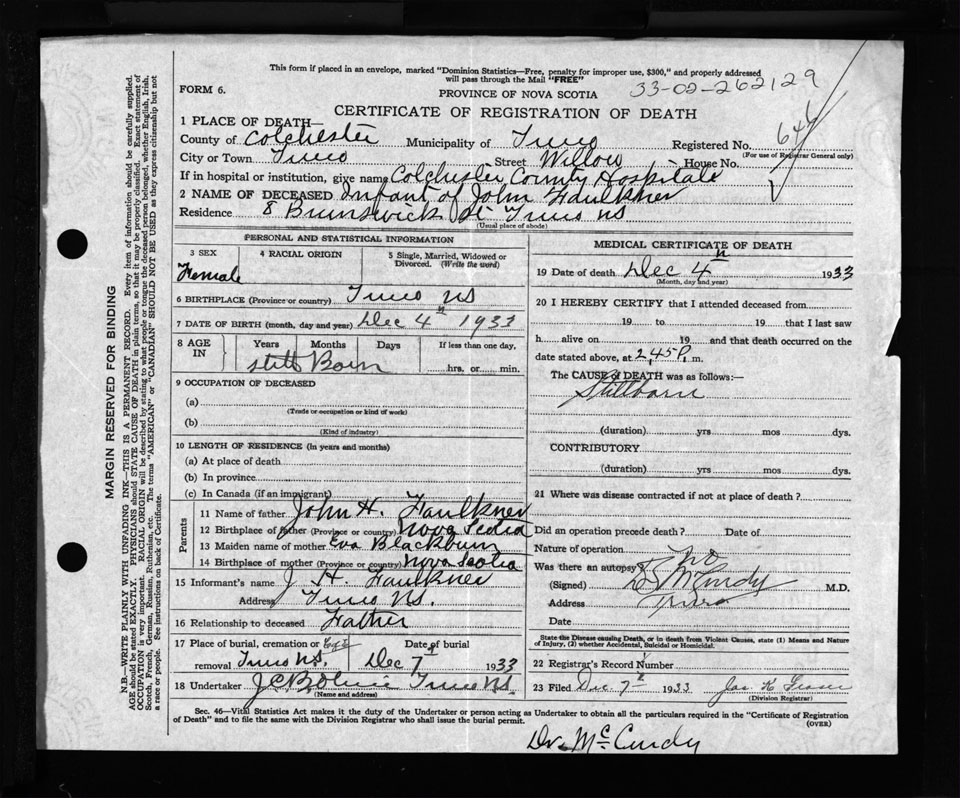 This form if placed in an envelope, marked "Dominion Statistics—Free, penalty for improper use, $300," and properly addressed
will pass through the Mail "FREE"
33-02-262129
FORM 6.
PROVINCE OF NOVA SCOTIA
CERTIFICATE OF REGISTRATION OF DEATH
646
1 PLACE OF DEATH—
County of Colchester Municipality of Truro Registered No.
(For use of Registrar General only)
City or Town Truro Street Willow House No.
If in hospital or institution, give name Colchester County Hospital
2 NAME OF DECEASED Infant of John Faulkner
Residence 8 Brunswick St Truro NS
(Usual place of abode)
PERSONAL AND STATISTICAL INFORMATION
3 SEX 4 RACIAL ORIGIN 5 Single, Married, Widowed or Divorced. (Write the word)
Female
6 BIRTHPLACE (Province or country) Truro NS
7 DATE OF BIRTH (month, day and year) Dec 4th 1933
8 AGE IN Years Months Days If less than one day,
still Born hrs. or min.
9 OCCUPATION OF DECEASED
(a)
(Trade or occupation or kind of work)
(b)
(Kind of industry)
10 LENGTH OF RESIDENCE (in years and months)
(a) At place of death
(b) In province
(c) In Canada (if an immigrant)
Parents
11 Name of father John H. Faulkner
12 Birthplace of father (Province or country) Nova Scotia
13 Maiden name of mother Eva Blackburn
14 Birthplace of mother (Province or country) Nova Scotia
15 Informant's name J. H. Faulkner
Address Truro NS.
16 Relationship to deceased Father
17 Place of burial, cremation or Date of burial
removal Truro NS. Dec 7 1933
18 Undertaker Truro NS.
(Name and address)
MEDICAL CERTIFICATE OF DEATH
19 Date of death Dec 4th 1933
(Month, day and year)
20 I HEREBY CERTIFY that I attended deceased from
19 to 19 that I last saw
h alive on 19 and that death occurred on the
date stated above, at 2.45 P. m.
The CAUSE of DEATH was as follows:—
Stillborn
(duration) yrs mos dys.
CONTRIBUTORY
(duration) yrs mos dys.
21 Where was disease contracted if not at place of death?
Did an operation precede death? Date of
Nature of operation
Was there an autopsy No
(Signed) McCurdy M.D.
Address Truro
Date
State the Disease causing Death, or in death from Violent Causes, state (1) Means and Nature
of Injury, (2) whether Accidental, Suicidal or Homicidal.
22 Registrar's Record Number
23 Filed Dec. 7th 1933 Jas K Fraser
(Division Registrar)
Sec. 46—Vital Statistics Act makes it the duty of the Undertaker or person acting as Undertaker to obtain all the particulars required in the "Certificate of Registration
of Death" and to file the same with the Division Registrar who shall issue the burial permit.
(OVER)
Dr. McCurdy
MARGIN RESERVED FOR BINDING
N.B.—WRITE PLAINLY WITH UNFADING INK—THIS IS A PERMANENT RECORD. Every item of information should be carefully supplied.
AGE should be stated EXACTLY. PHYSICIANS should STATE CAUSE OF DEATH in plain terms, so that it may be properly classified. Exact statement of
OCCUPATION is very important. RACIAL ORIGIN will be described by stating to what people or tongue the deceased person belonged, whether English, Irish,
Scotch, French, German, Russian, Ruthenian, etc. The terms "AMERICAN" or "CANADIAN" SHOULD NOT BE USED as they express citizenship but not
a race or people. See instructions on back of Certificate.